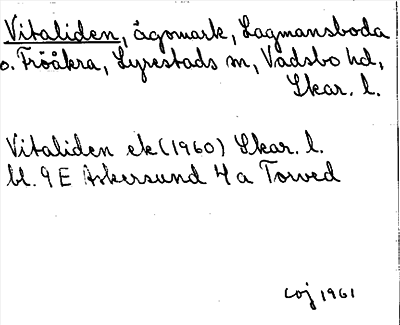 Vitaliden, ägomark, Lagmansboda
o. Fröåkra, Lyrestads sn, Vadsbo hd,
Skar. l.
Vitaliden ek (1960) Skar. l.
bl. 9E Askersund 4a Torved
COJ 1961